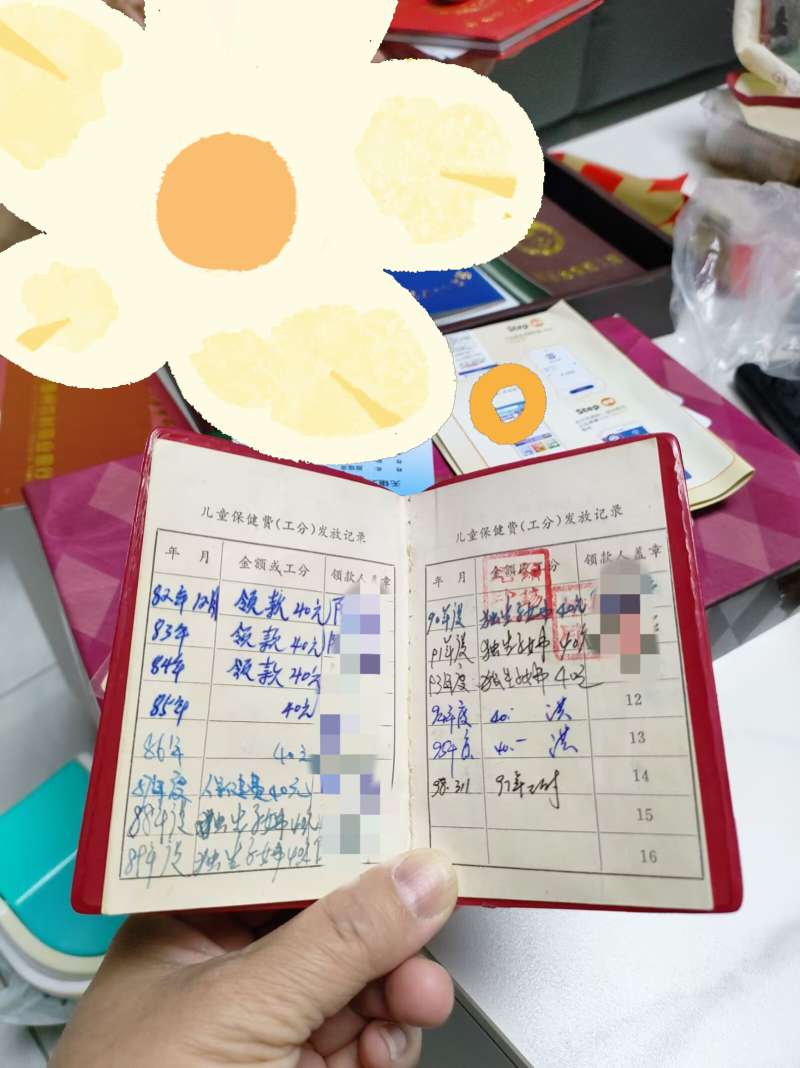 Step
Step
无锡
儿童保健费(工分)发放记录
年 月 金额或工分 领款人盖章
82年12月 领款40元
83年 领款40元
84年 领款40元
85年 40元
86年 40元
87年度 保健费40元
88年度 独生子女费40元
89年度 独生子女费40元
儿童保健费(工分)发放记录
年 月 金额或工分 领款人盖章
90年度 独生子女费40元
91年度 独生子女费40元
93年度 独生子女费40元
94年度 40.- 洪 12
95年度 40.- 洪 13
98.3.11 97年 14
15
16